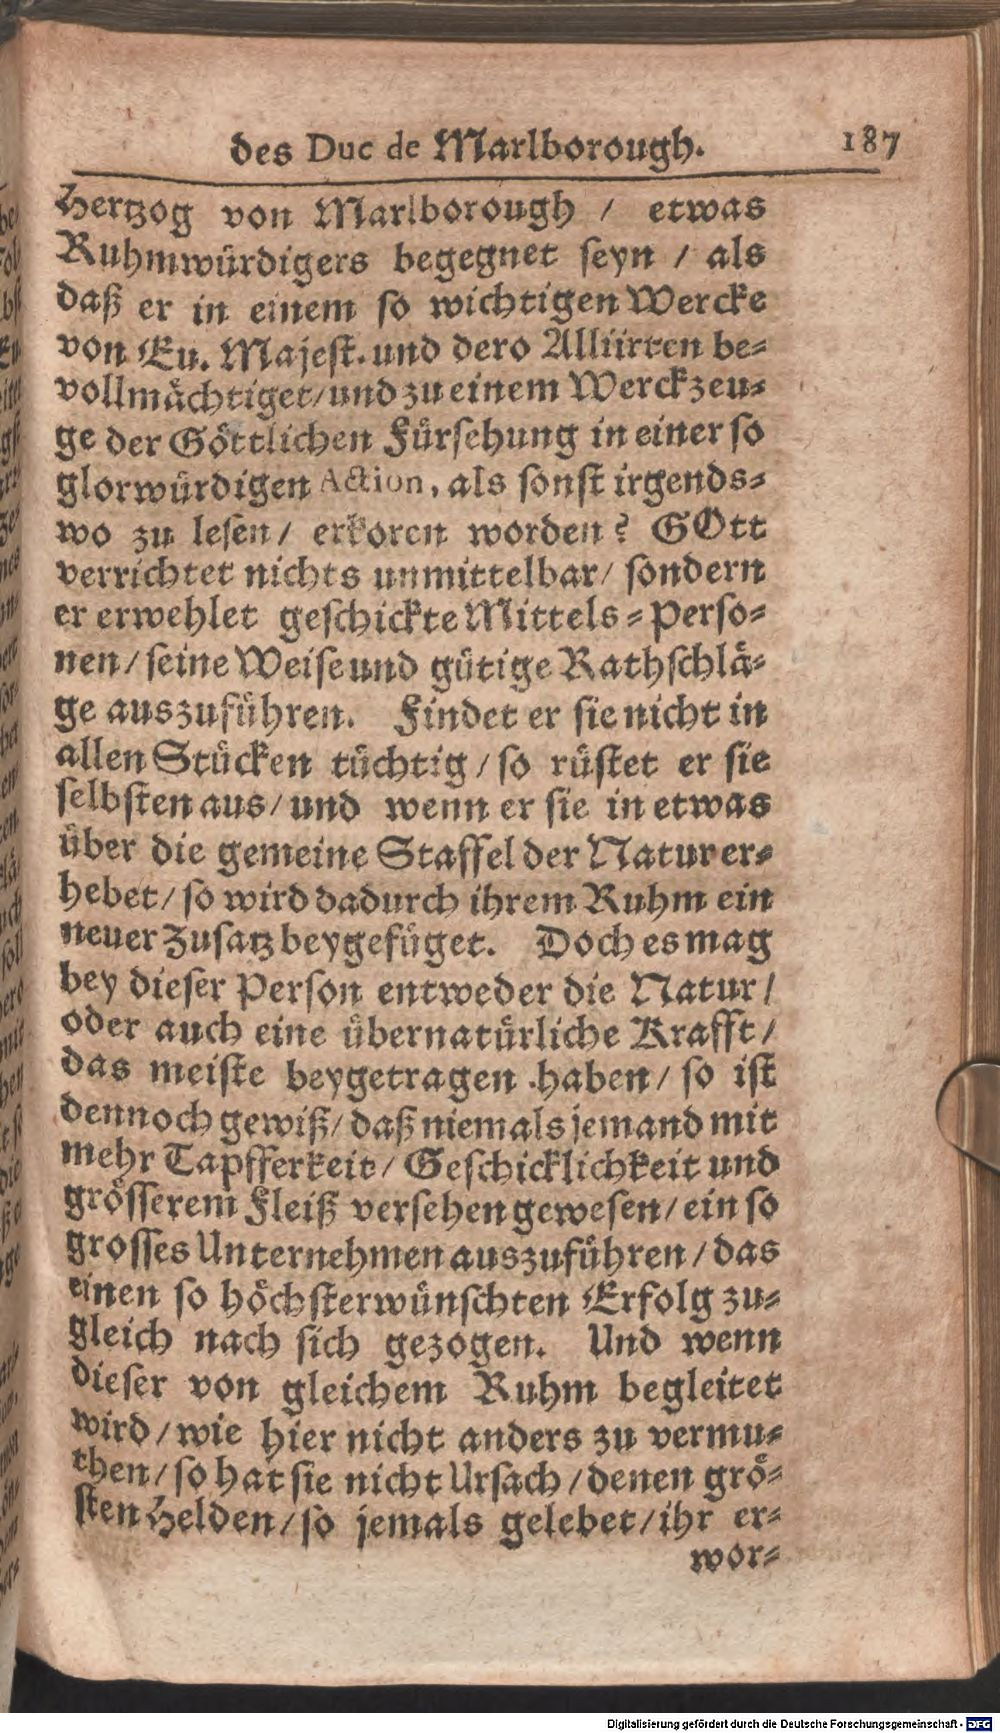 des Duc de Marlborough. 187
Hertzog von Marlborough / etwas
Ruhmwürdigers begegnet seyn / als
daß er in einem so wichtigen Wercke
von Eu. Majest. und dero Alliirten be-
vollmächtiget/ und zu einem Werckzeu-
ge der Göttlichen Fürsehung in einer so
glorwürdigen Action, als sonst irgends-
wo zu lesen/ erkoren worden? GOtt
verrichtet nichts unmittelbar/ sondern
er erwehlet geschickte Mittels-Perso-
nen/ seine Weise und gütige Rathschlä-
ge auszuführen. Findet er sie nicht in
allen Stücken tüchtig / so rüstet er sie
selbsten aus/ und wenn er sie in etwas
über die gemeine Staffel der Natur er-
hebet/ so wird dadurch ihrem Ruhm ein
neuer Zusatz beygefüget. Doch es mag
bey dieser Person entweder die Natur/
oder auch eine übernatürliche Krafft/
das meiste beygetragen haben/ so ist
dennoch gewiß/ daß niemals jemand mit
mehr Tapfferkeit/ Geschicklichkeit und
grösserem Fleiß versehen gewesen/ ein so
grosses Unternehmen auszuführen / das
einen so höchsterwünschten Erfolg zu-
gleich nach sich gezogen. Und wenn
dieser von gleichem Ruhm begleitet
wird / wie hier nicht anders zu vermu-
then/ so hat sie nicht Ursach / denen grö-
sten Helden/ so jemals gelebet/ ihr er-
wor-
Digitalisierung gefördert durch die Deutsche Forschungsgemeinschaft - DFG